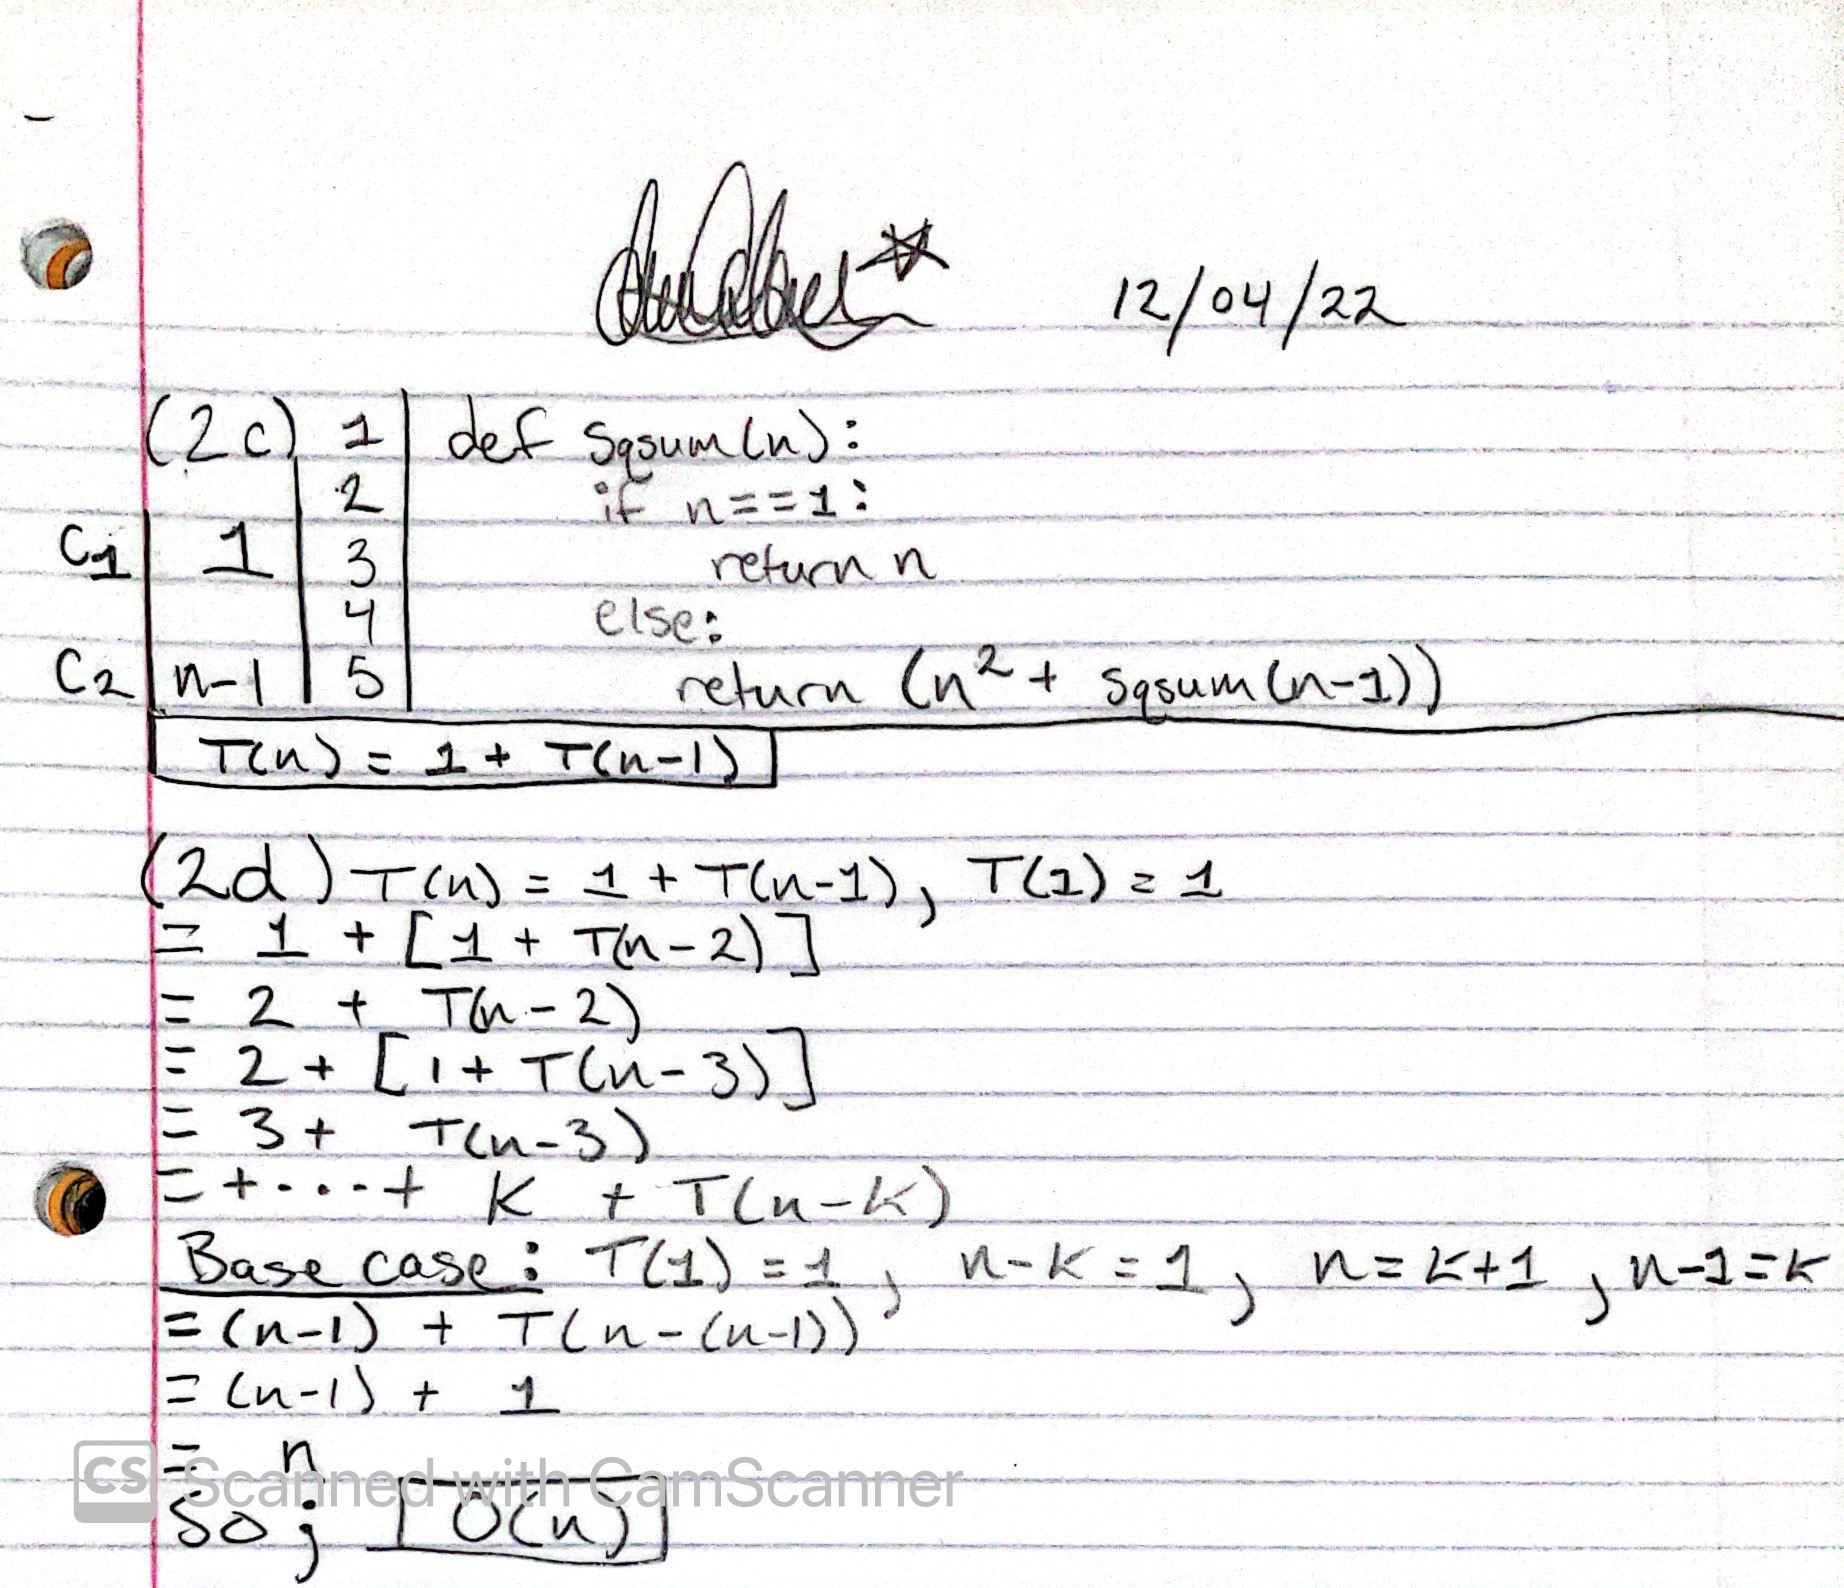 12/04/22
(2c) 1 def sqsum(n):
2 if n==1:
C1 1 3 return n
4 else:
C2 n-1 5 return (n² + sqsum(n-1))
T(n) = 1 + T(n-1)
(2d) T(n) = 1 + T(n-1), T(1) = 1
= 1 + [1 + T(n-2)]
= 2 + T(n-2)
= 2 + [1 + T(n-3)]
= 3 + T(n-3)
= +...+ K + T(n-K)
Base case: T(1) = 1, n-K = 1, n = K+1, n-1 = K
= (n-1) + T(n-(n-1))
= (n-1) + 1
= n
CS Scanned with CamScanner
So; O(n)